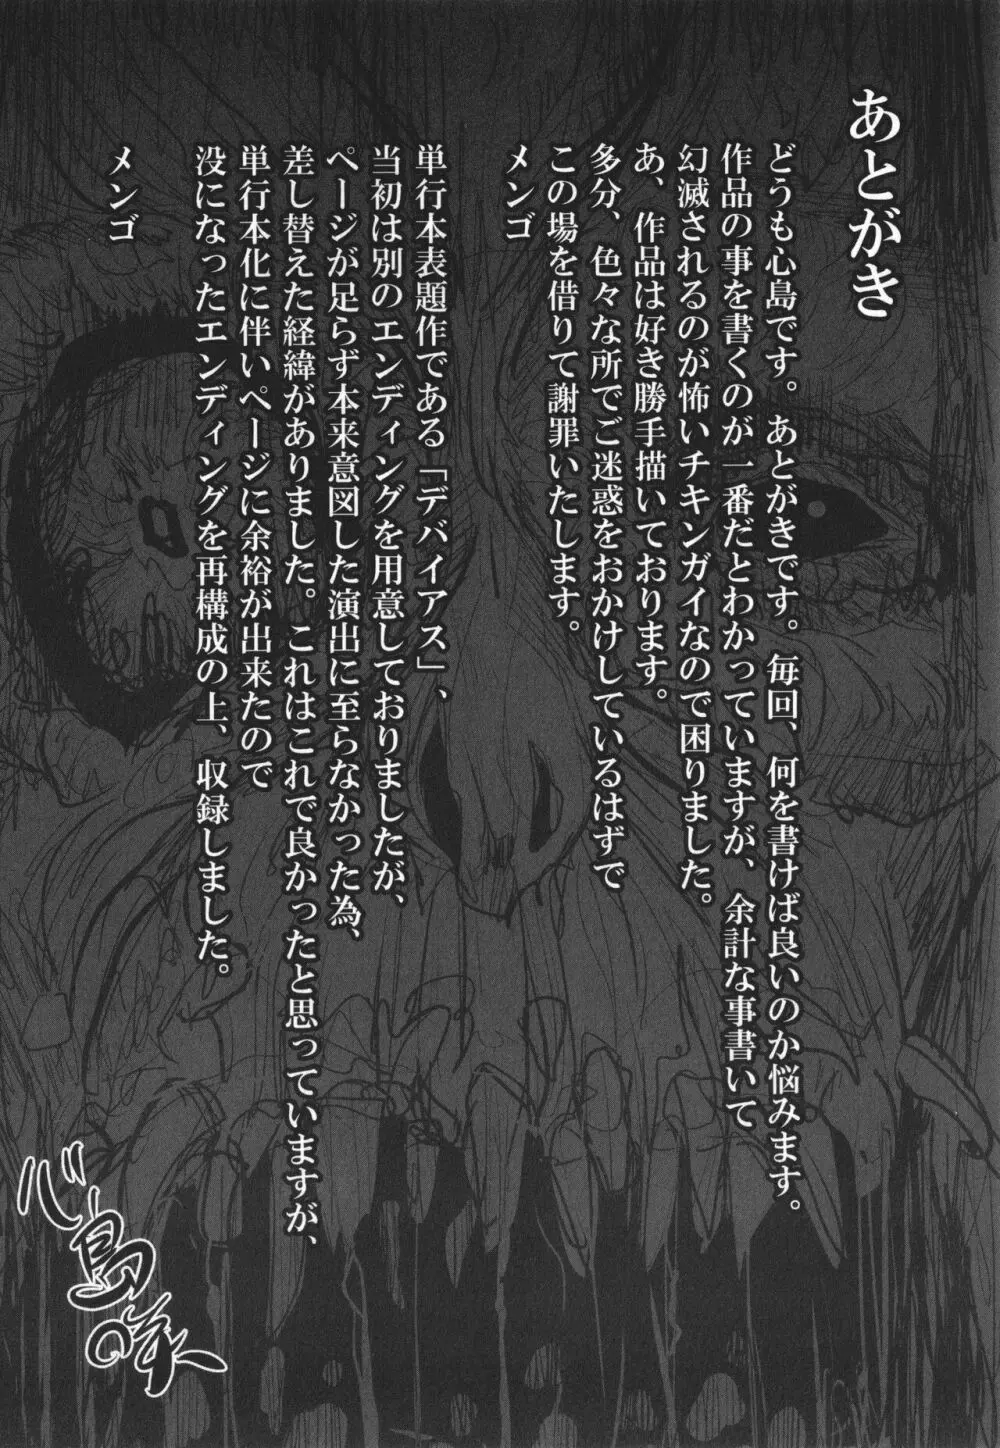 あとがき
どうも心島です。あとがきです。毎回、何を書けば良いのか悩みます。
作品の事を書くのが一番だとわかっていますが、余計な事書いて
幻滅されるのが怖いチキンガイなので困りました。
あ、作品は好き勝手描いております。
多分、色々な所でご迷惑をおかけしているはずで
この場を借りて謝罪いたします。
メンゴ
単行本表題作である「デバイアス」、
当初は別のエンディングを用意しておりましたが、
ページが足らず本来意図した演出に至らなかった為、
差し替えた経緯がありました。これはこれで良かったと思っていますが、
単行本化に伴いページに余裕が出来たので
没になったエンディングを再構成の上、収録しました。
メンゴ
心島咲